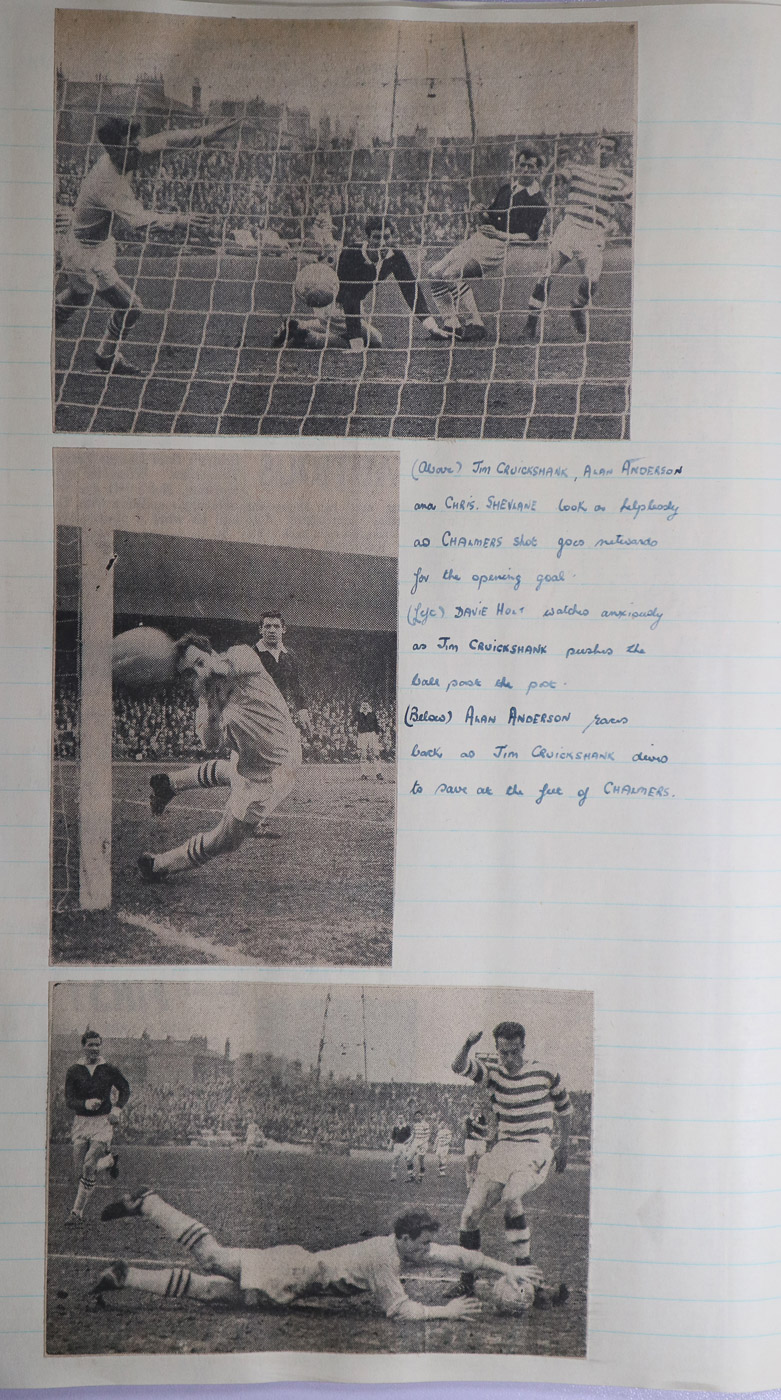 (Above) Jim CRUICKSHANK, ALAN ANDERSON
and CHRIS. SHEVLANE look on helplessly
as CHALMERS shot goes netwards
for the opening goal.
(Left) DAVIE HOLT watches anxiously
as Jim CRUICKSHANK pushes the
ball past the post.
(Below) ALAN ANDERSON races
back as JIM CRUICKSHANK dives
to save at the feet of CHALMERS.